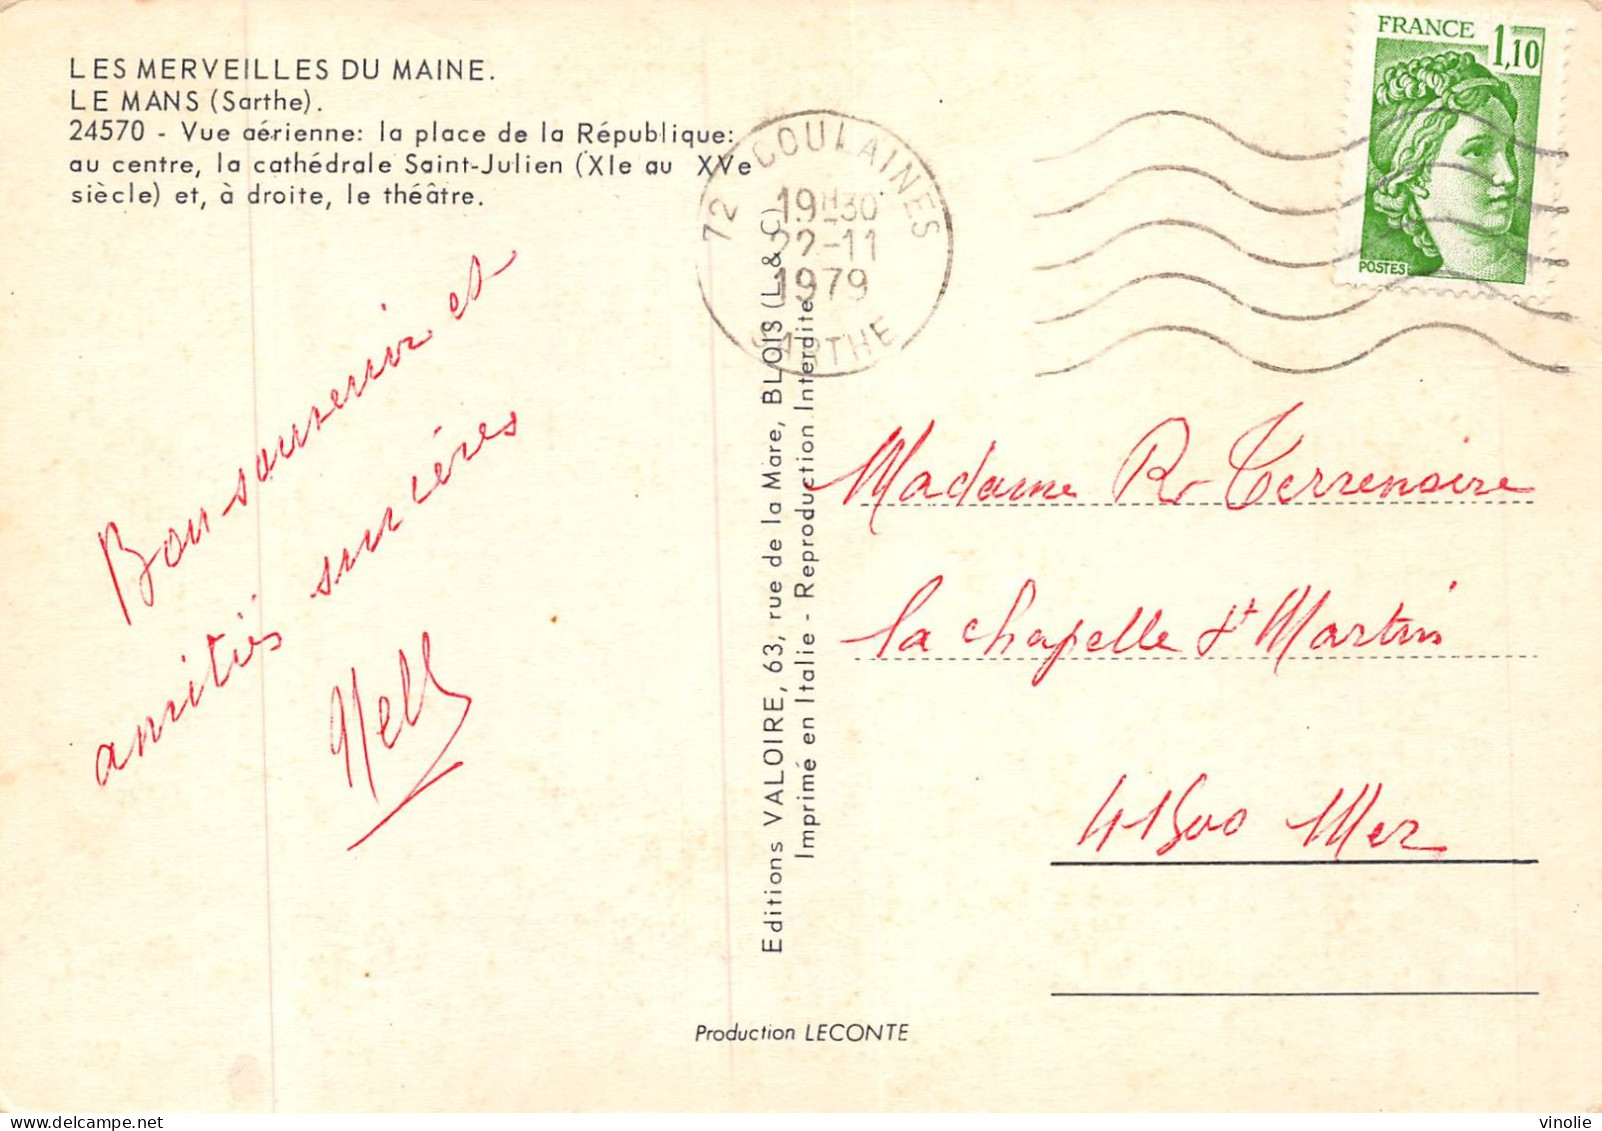 LES MERVEILLES DU MAINE.
LE MANS (Sarthe).
24570 - Vue aérienne: la place de la République:
au centre, la cathédrale Saint-Julien (XIe au XVe
siècle) et, à droite, le théâtre.
Bon souvenir et
amitiés sincères
Nell
Editions VALOIRE, 63, rue de la Mare, BLOIS (L. & C)
Imprimé en Italie - Reproduction Interdite
Production LECONTE
72 COULAINES
19H30
22-11
1979
SARTHE
FRANCE 1,10
POSTES
Madame R. Terrenoire
la chapelle St Martin
41500 Mer
vinolie